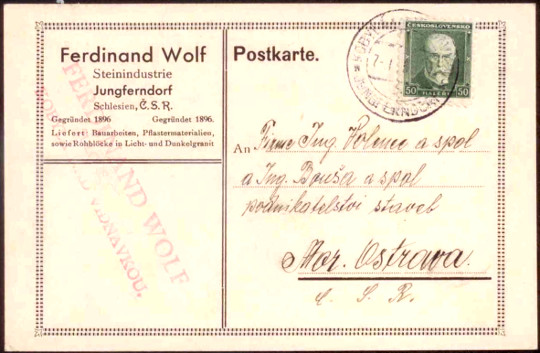 Ferdinand Wolf
Steinindustrie
Jungferndorf
Schlesien, Č.S.R.
Gegründet 1896 Gegründet 1896.
Liefert Bauarbeiten, Pflastermaterialien,
sowie Rohblötke in Licht- und Dunkelgranit
FERDINAND WOLF
VIDNAVKOU.
Postkarte.
ČESKOSLOVENSKO
50 HALÉŘŮ 50
An Firme Ing Volenec a spol
a Ing. Bouša a spol
podnikatelství staveb
Mor. Ostrava.
Č. S. R.